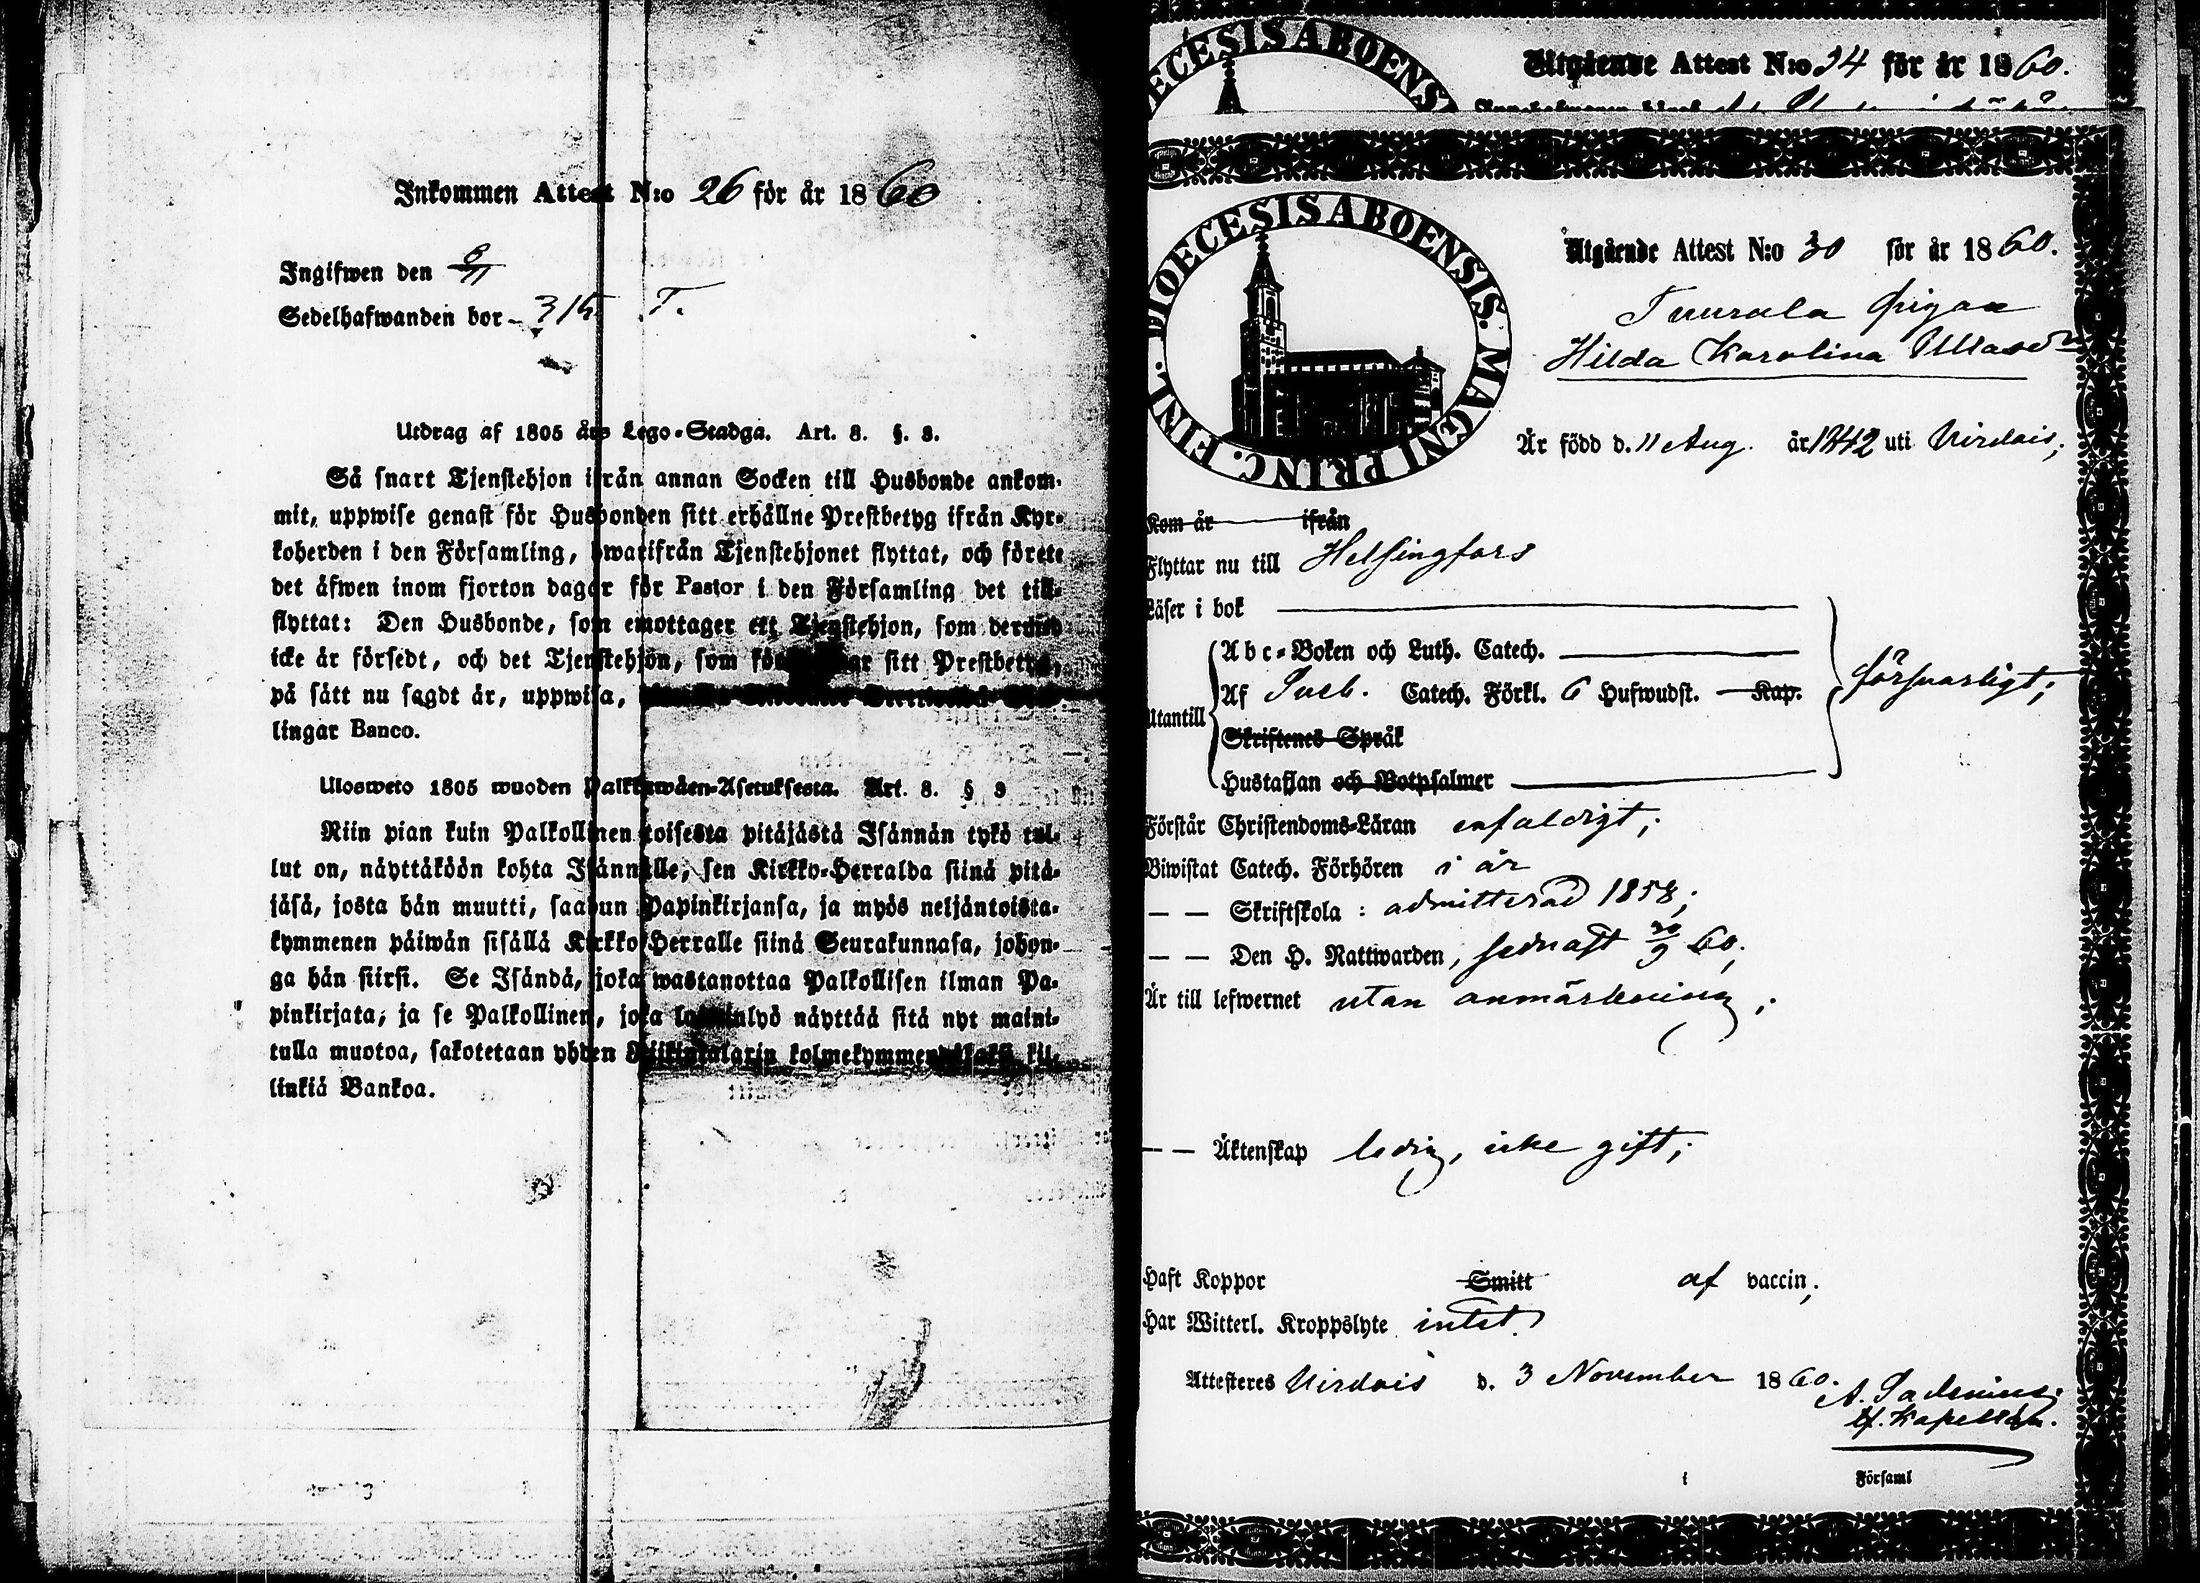 Inkommen Attest N:o 26 för år 1860
Ingifwen den 6/11
Sedelhafwanden bor
Utdrag af 1805 års Lego-Stadga. Art. 8. §. 3.
Så snart Tjenstehjon ifrån annan Socken till Husbonde ankom-
mit, uppwise genast för Husbonden sitt erhållne Prestbetyg ifrån Kyr-
koherden i den Församling, hwarifrån Tjenstehjonet flyttat, och förete
det äfwen inom fjorton dagar för Pastor i den Församling det till-
flyttat: Den Husbonde, som emottager ett Tjenstehjon, som dermed
icke är försedt, och det Tjenstehjon, som sitt Prestbetyg,
på sätt nu sagdt är, uppwisa,
lingar Banco.
Ulosweto 1805 wuoden Palkkawäen-Asetuksesta. Art. 8. § 3
Niin pian kuin Palkollinen toisesta pitäjästä Isännän tykö tul-
lut on, näyttäköön kohta Isännälle, sen Kirkko-Herralda siinä pitä-
jäsä, josta hän muutti, saadun Papinkirjansa, ja myös neljäntoista-
kymmenen päiwän sisällä Kirkko-Herralle siinä Seurakunnasa, johon-
ga hän siirsi. Se Isändä, joka wastanottaa Palkollisen ilman Pa-
pinkirjata, ja se Palkollinen, joka näyttää sitä nyt maini-
tulla muotoa, sakotetaan yhden Riikintalarin kolmekymmendäkaksi kil-
linkiä Bankoa.
DIOECESIS ABOENSIS
Utgående Attest N:o 34 för år 1860.
DIOECESIS ABOENSIS. MAGNI PRINC. FINL.
Utgående Attest N:o 30 för år 1860.
Tuurala Pigan
Hilda Karolina
Är född d. 11 Aug. år 1842 uti Virdois;
Kom år ifrån
Flyttar nu till Helsingfors
Läser i bok
Abc-Boken och Luth. Catech.
Utantill Af Sveb. Catech. Förkl. 6 Hufwudst. Kap. försvarligt;
Skriftenes Språk
Hustaflan och Botpsalmer
Förstår Christendoms-Läran enfaldigt;
Biwistat Catech. Förhören i år
— — Skriftskola: admitterad 1858;
— — Den H. Nattwarden, sednast 30/9 60;
Är till lefwernet utan anmärkning;
— — Äktenskap ledig, icke gift;
Haft Koppor Smitt af vaccin;
Har Witterl. Kroppslyte intet.
Attesteres Virdois d. 3 November 1860.
i Församl